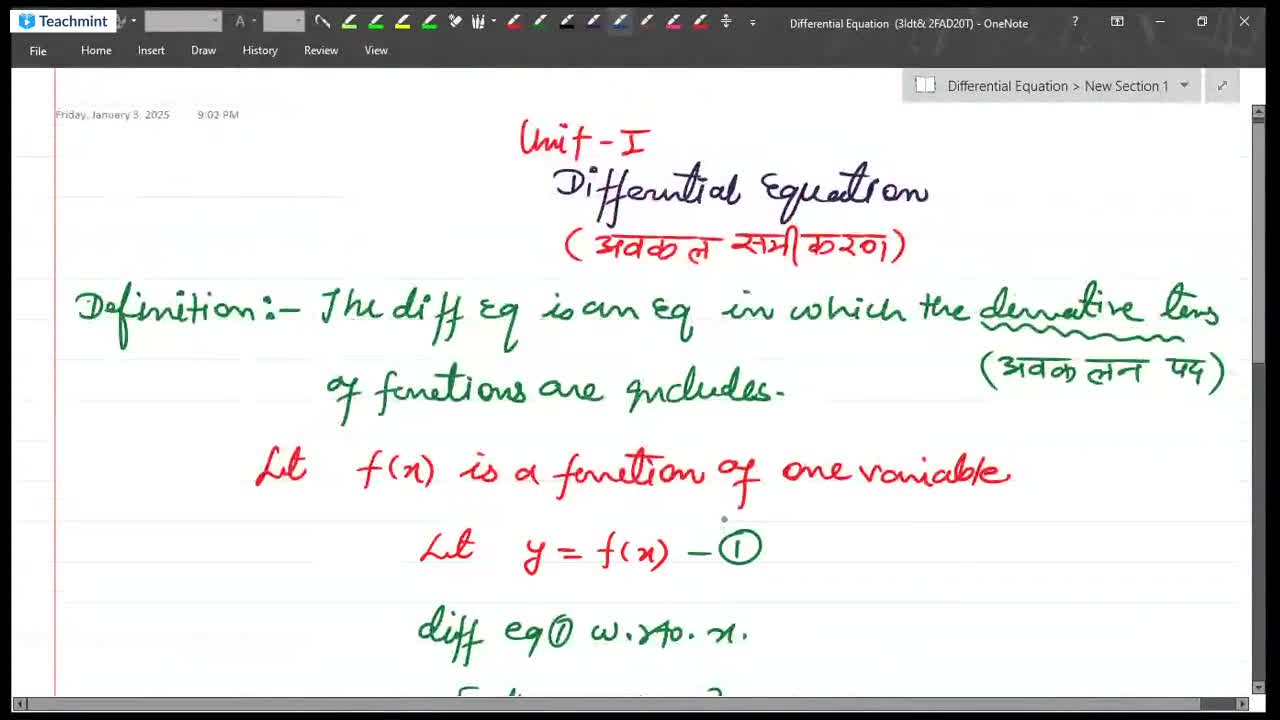 Teachmint
Differential Equation (3ldt& 2FAD20T) - OneNote
File Home Insert Draw History Review View
Differential Equation > New Section 1
Friday, January 3, 2025 9:02 PM
Unit - I
Differential Equation
(अवकल समीकरण)
Definition:- The diff Eq is an Eq in which the derivative
(अवकलन पद)
of functions are includes.
Let f(x) is a function of one variable
Let y = f(x) - ①
diff eq ① w.r.to. x.